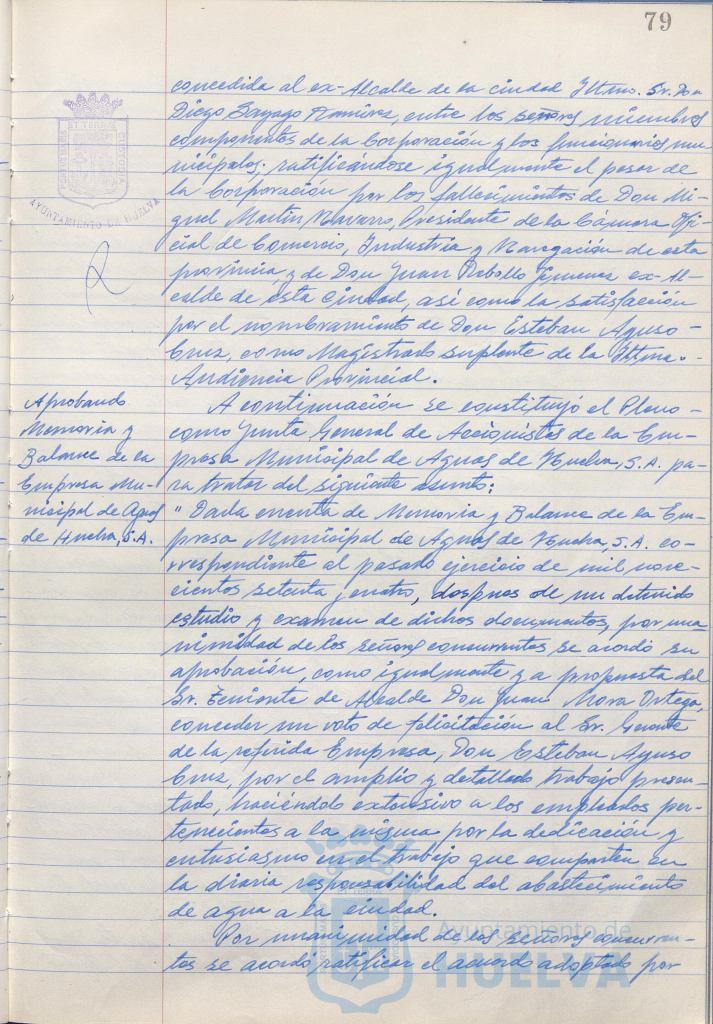 79
concedida al ex-Alcalde de la ciudad Iltmo. Sr. Don
Diego Sayago Ramírez, entre los señores miembros
componentes de la Corporación y los funcionarios mu-
nicipales; ratificándose igualmente el pesar de
la Corporación por los fallecimientos de Don Mi-
guel Martín Navarro, Presidente de la Cámara Ofi-
cial de Comercio, Industria y Navegación de esta
provincia, y de Don Juan Rebollo Jimenez ex-Al-
calde de esta Ciudad, así como la satisfacción
por el nombramiento de Don Esteban Ayuso
Cruz, como Magistrado suplente de la Iltma.
Audiencia Provincial.
Aprobando
Memoria y
Balance de la
Empresa Mu-
nicipal de Aguas
de Huelva, S.A.
A continuación se constituyó el Pleno
como Junta General de Accionistas de la Em-
presa Municipal de Aguas de Huelva, S.A. pa-
ra tratar del siguiente asunto:
"Dada cuenta de Memoria y Balance de la Em-
presa Municipal de Aguas de Huelva, S.A. co-
rrespondiente al pasado ejercicio de mil nove-
cientos setenta y cuatro, despues de un detenido
estudio y examen de dichos documentos, por una-
nimidad de los señores concurrentes se acordó su
aprobación, como igualmente y a propuesta del
Sr. Teniente de Alcalde Don Juan Mora Ortega,
conceder un voto de felicitación al Sr. Gerente
de la referida Empresa, Don Esteban Ayuso
Cruz, por el amplio y detallado trabajo presen-
tado, haciéndolo extensivo a los empleados per-
tenecientes a la misma por la dedicación y
entusiasmo en el trabajo que comparten en
la diaria responsabilidad del abastecimiento
de agua a la ciudad.
Por unanimidad de los señores concurren-
tes se acordó ratificar el acuerdo adoptado por
AYUNTAMIENTO DE HUELVA
Ayuntamiento de
HUELVA